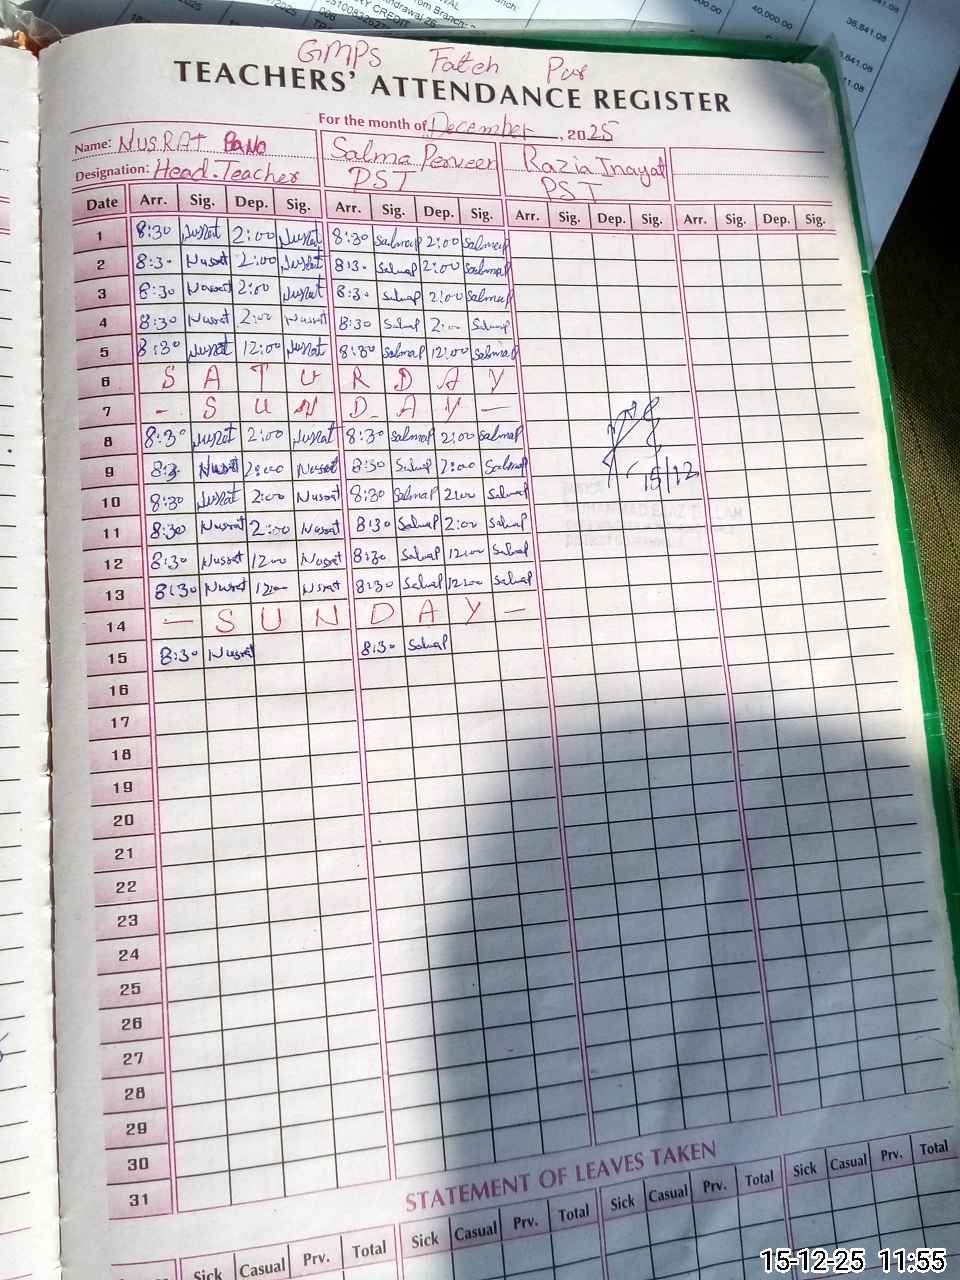 GMPS Fateh Pur
TEACHERS' ATTENDANCE REGISTER
For the month of December, 2025
Name: NUSRAT BANO Salma Perveen Razia Inayat
Designation: Head.Teacher PST PST
Date Arr. Sig. Dep. Sig. Arr. Sig. Dep. Sig. Arr. Sig. Dep. Sig. Arr. Sig. Dep. Sig.
1 8:30 Nusrat 2:00 Nusrat 8:30 SalmaP 2:00 SalmaP
2 8:30 Nusrat 2:00 Nusrat 8:30 SalmaP 2:00 SalmaP
3 8:30 Nusrat 2:00 Nusrat 8:30 SalmaP 2:00 SalmaP
4 8:30 Nusrat 2:00 Nusrat 8:30 SalmaP 2:00 SalmaP
5 8:30 Nusrat 12:00 Nusrat 8:30 SalmaP 12:00 SalmaP
6 S A T U R D A Y
7 - S U N D A Y -
8 8:30 Nusrat 2:00 Nusrat 8:30 SalmaP 2:00 SalmaP
9 8:30 Nusrat 2:00 Nusrat 8:30 SalmaP 2:00 SalmaP
15/12
10 8:30 Nusrat 2:00 Nusrat 8:30 SalmaP 2:00 SalmaP
11 8:30 Nusrat 2:00 Nusrat 8:30 SalmaP 2:00 SalmaP
12 8:30 Nusrat 12:00 Nusrat 8:30 SalmaP 12:00 SalmaP
13 8:30 Nusrat 12:00 Nusrat 8:30 SalmaP 12:00 SalmaP
14 - S U N D A Y -
15 8:30 Nusrat 8:30 SalmaP
16
17
18
19
20
21
22
23
24
25
26
27
28
29
30
31
STATEMENT OF LEAVES TAKEN
Sick Casual Prv. Total Sick Casual Prv. Total Sick Casual Prv. Total Sick Casual Prv. Total
15-12-25 11:55